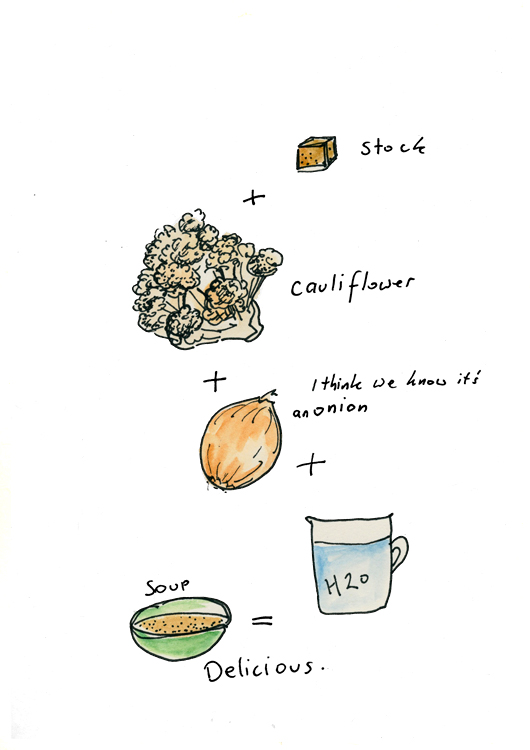 stock
+
cauliflower
+
I think we know it's
an onion
+
H2O
Soup
=
Delicious.